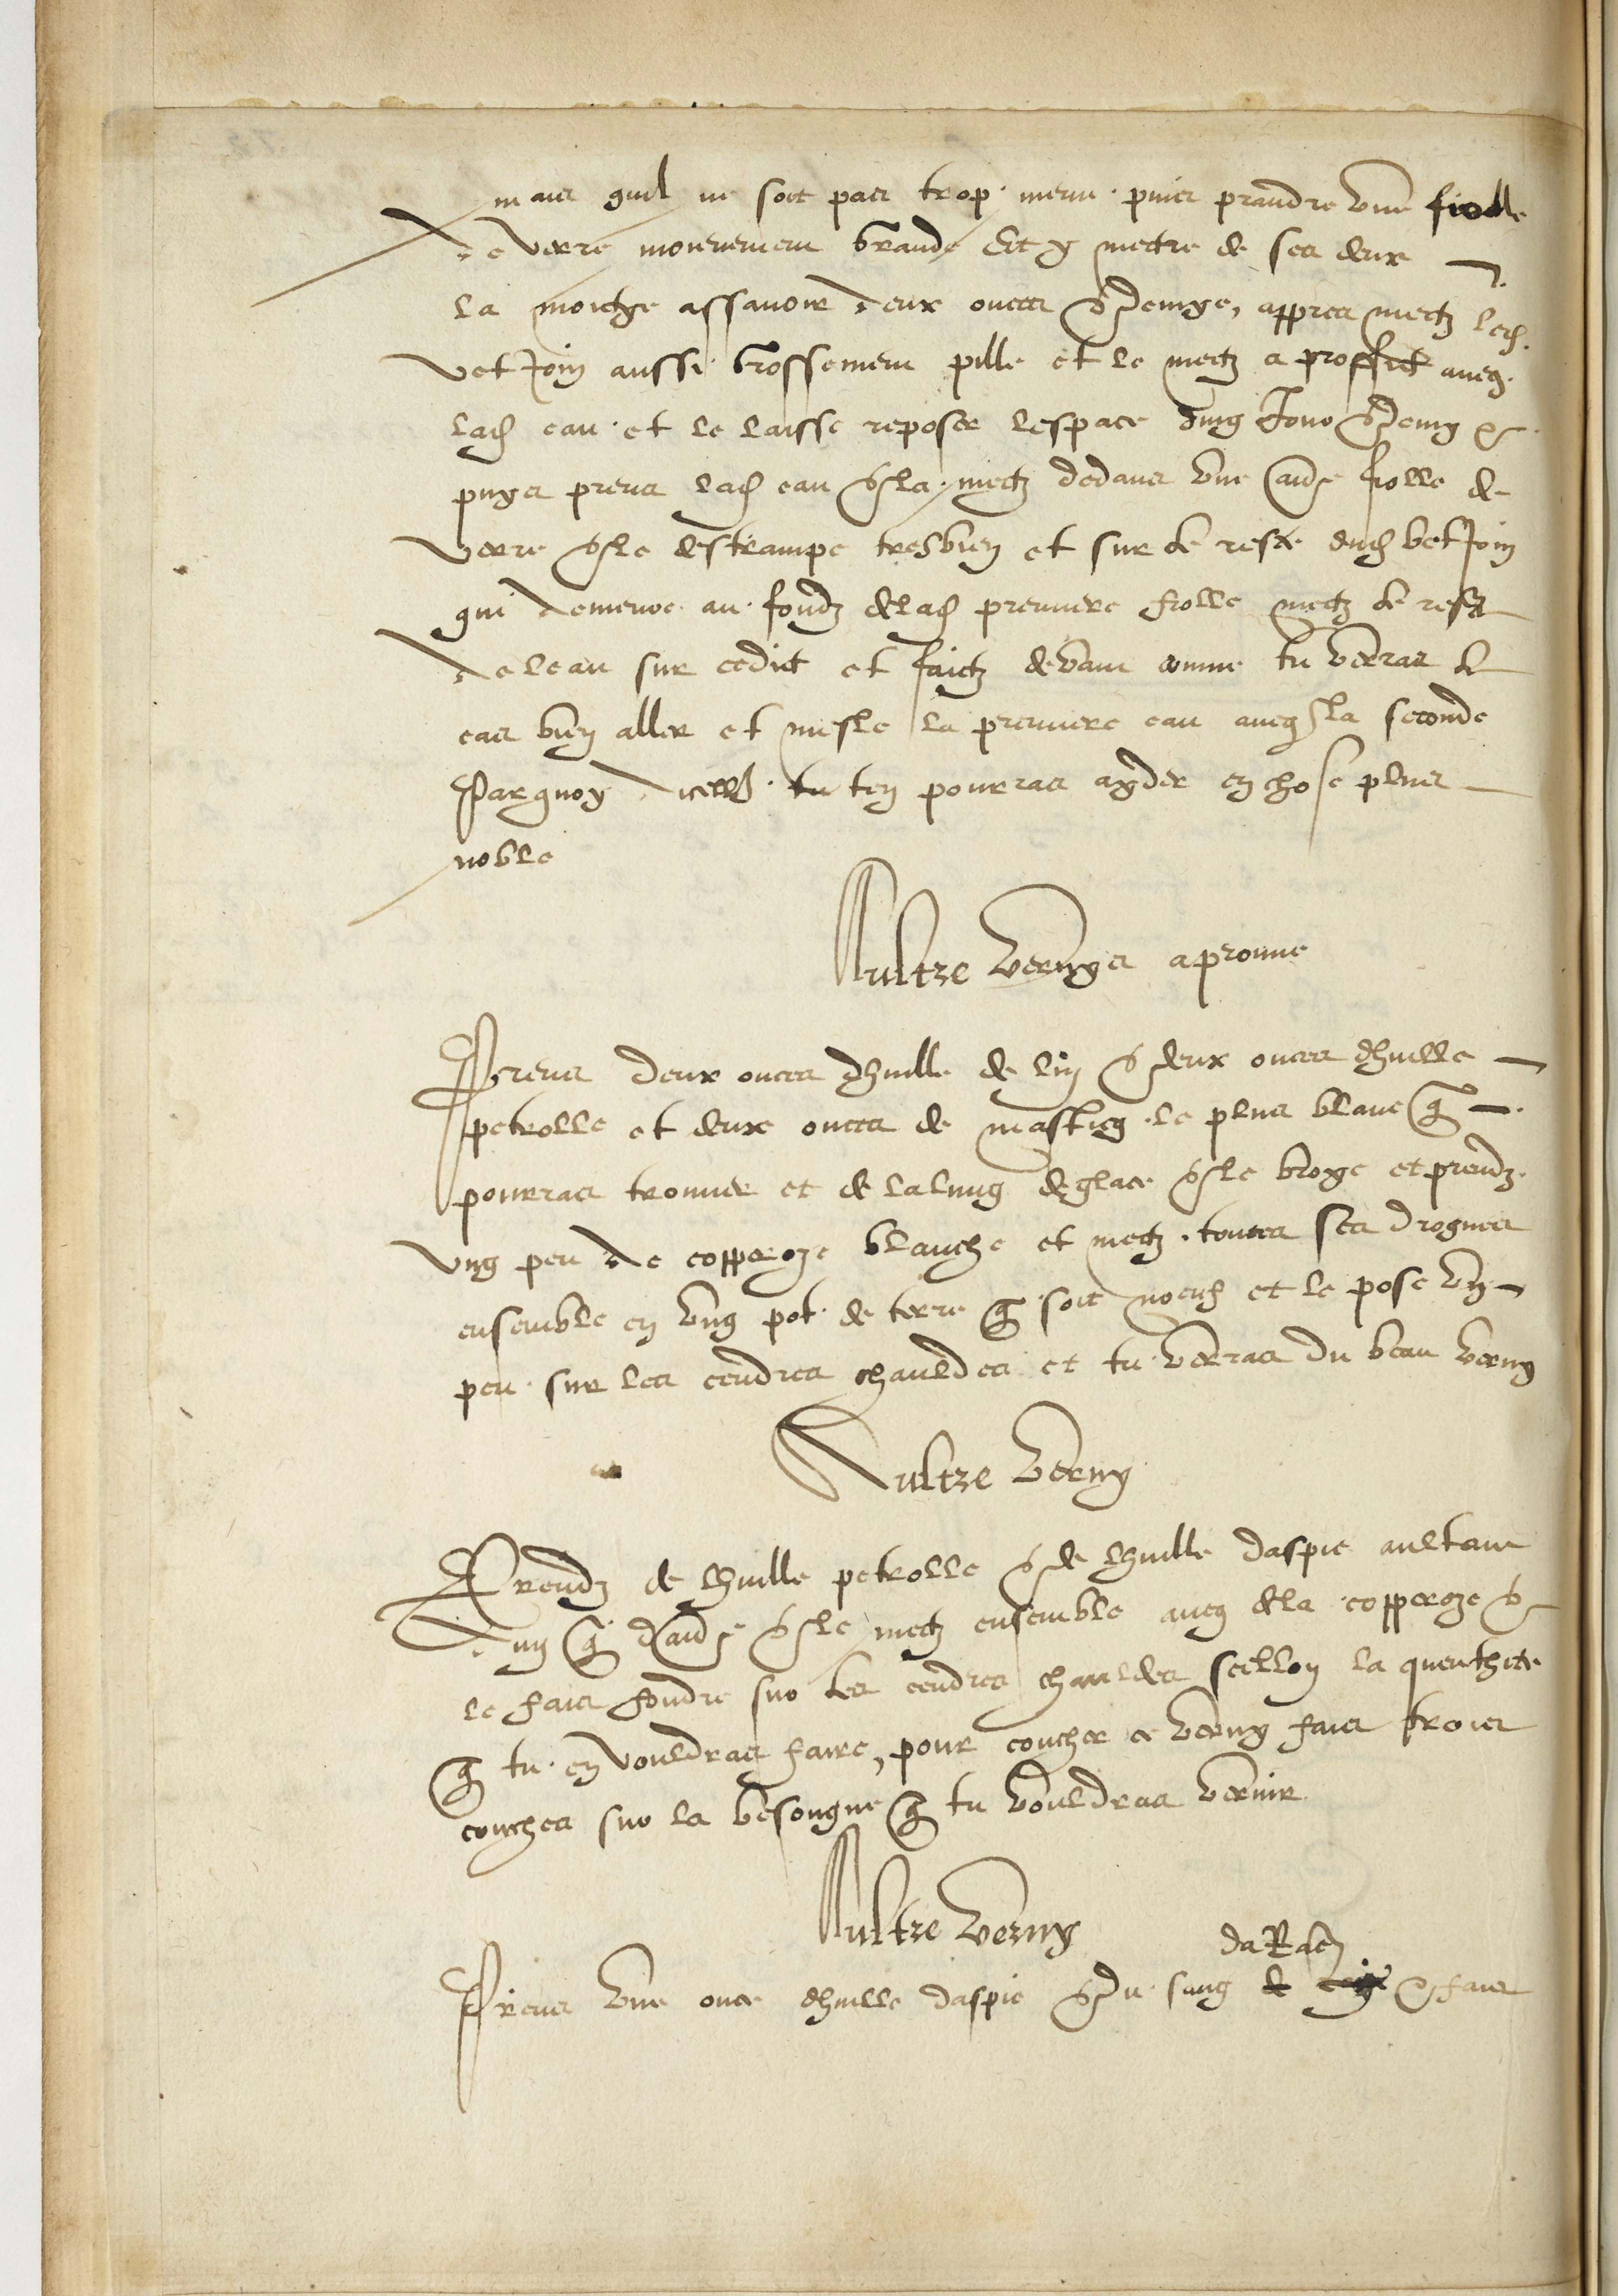 mais quil ne soit pas trop menu puis prandre une fiolle
de verre moienement grande Et y mectre de ses deux
la moictye assavoir deux onces & demye, appres mectz led.
betJoin aussi grossement pille et le mectz a proffict aveq
lad eau et le laisse reposer lespace dung Jour & demy &
puys prens lad eau & la mectz dedans une aultre fiolle de
verre & le destrampe tresbien et sur le reste dud betJoin
qui demeure au fondz delad premiere fiolle mectz le reste
de leau sur cedict et faictz devant comme tu verras le
cas bien aller et mesle la premiere eau aveq la seconde
Parquoy dicelle tu ten pourras ayder en chose plus
noble
Aultre vernys aprouve
Prens deux onces dhuille de lin & deux onces dhuille
petrolle et deux onces de masticq le plus blanc q
pourras trouver et de lalung de glace & le broye et prendz
ung peu de copperoze blanche et mectz toutes ses drogues
ensemble en ung pot de terre q soit noeuf et le pose un
peu sur les cendres chauldes et tu verras du beau verny
Aultre verny
Prendz de lhuille petrolle & de lhuille daspic aultant
dun q daultre & le mectz ensemble aveq dela copperoze &
le fais fondre sur les cendres chauldes scellon la quenthite
q tu en vouldras faire, pour coucher ce verny fais trois
couches sur la besongne q tu vouldras vernir
Aultre verny
daRac
Prens une once dhuille daspic & du sang de & fais